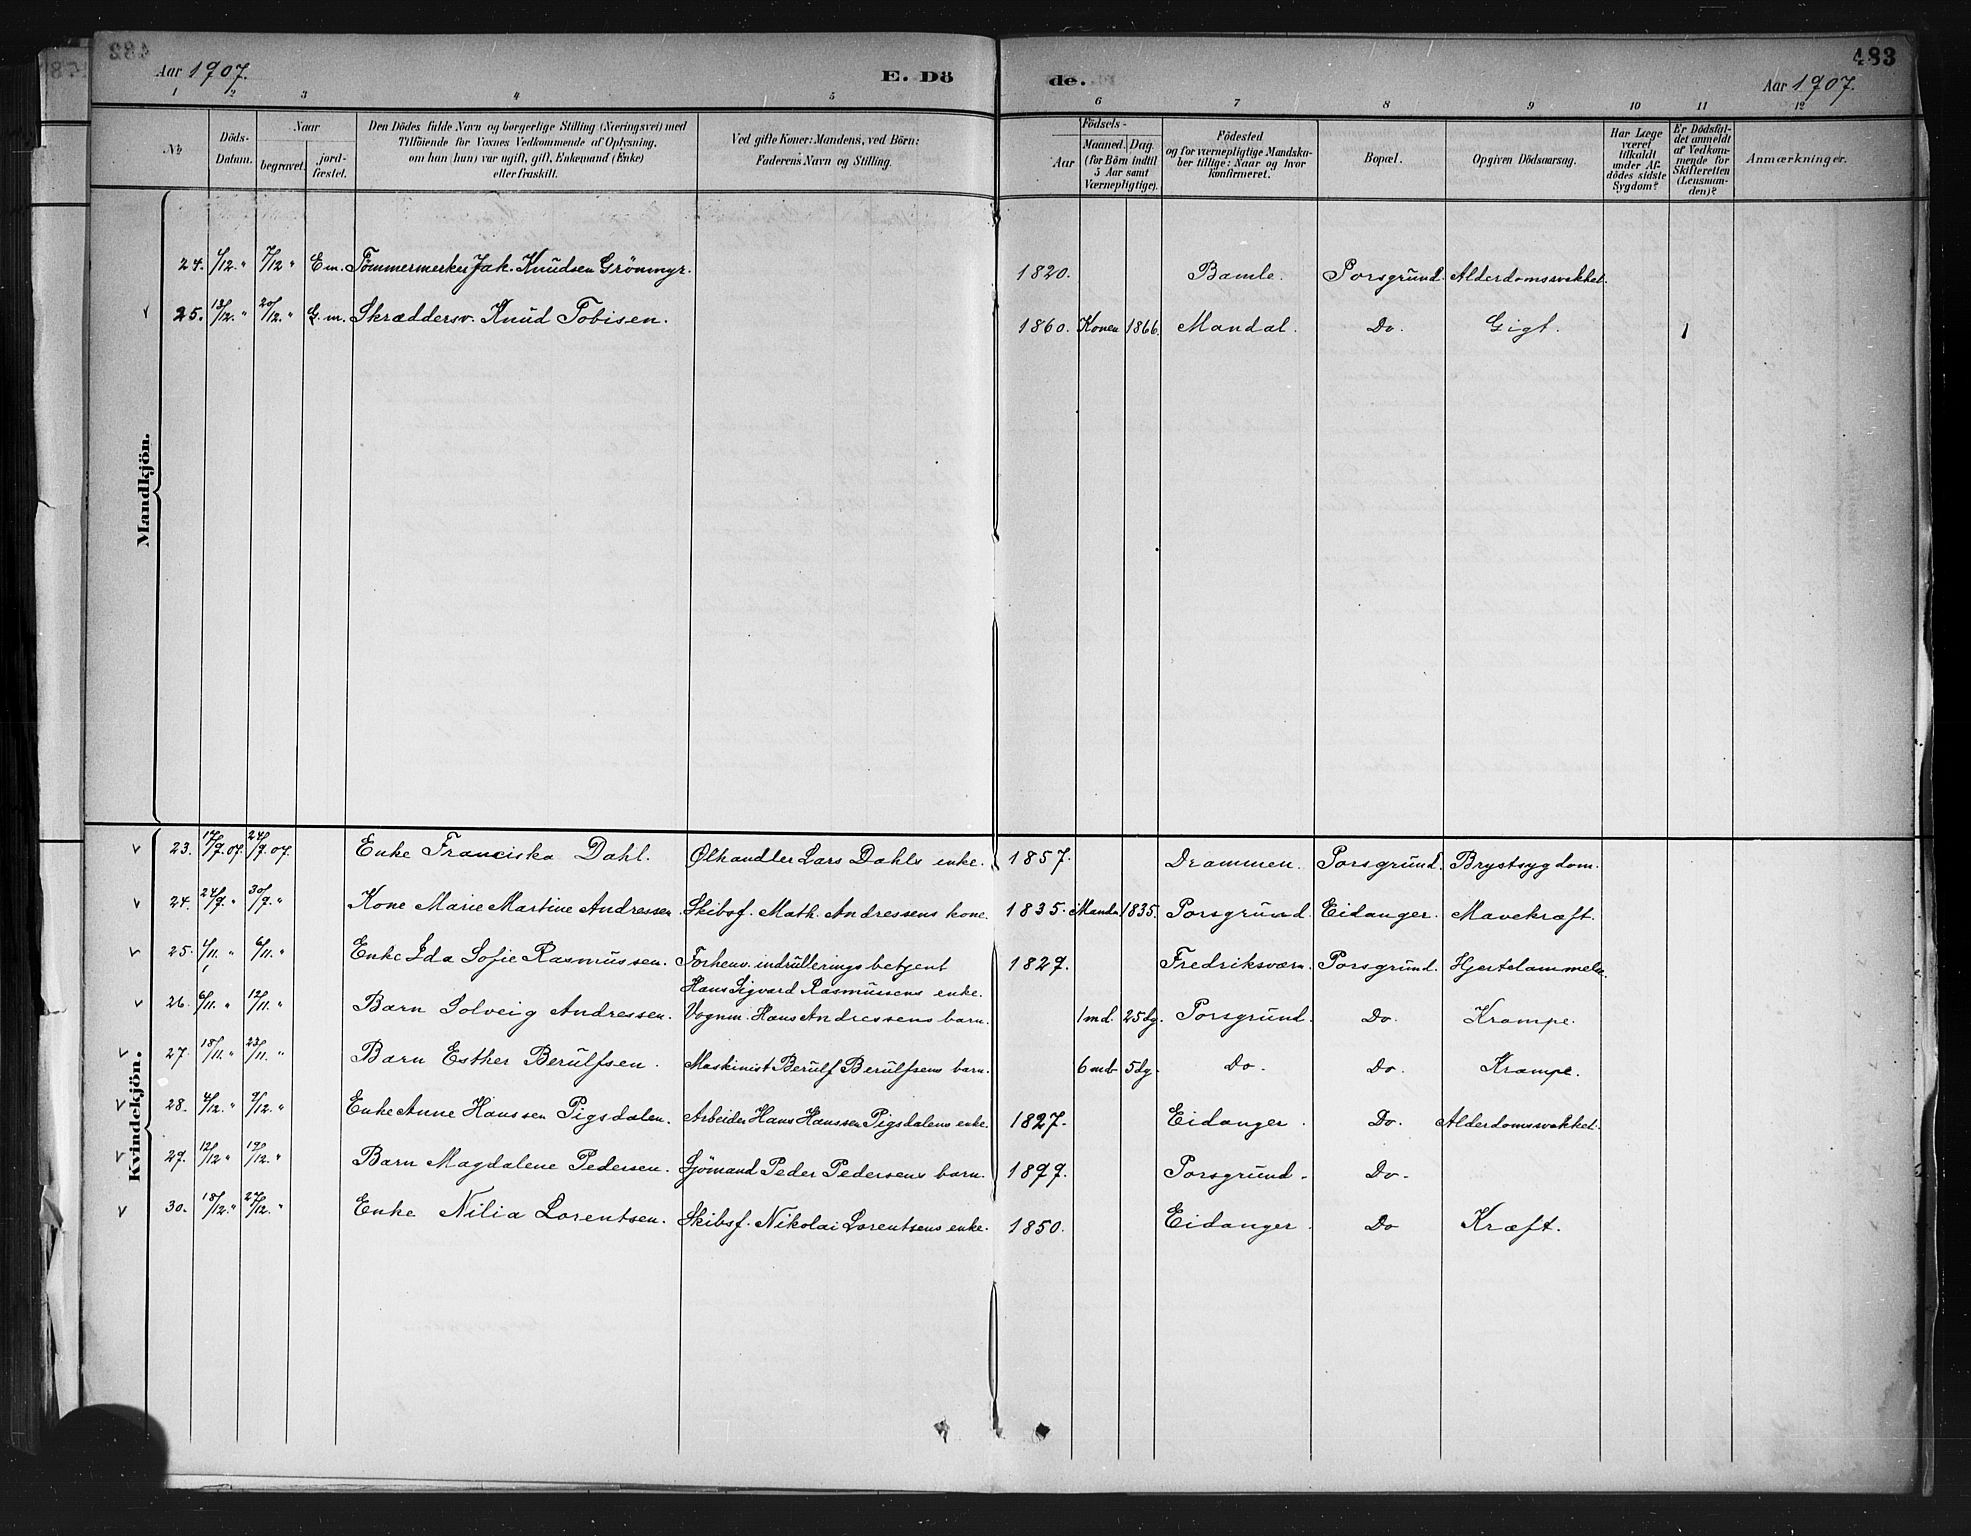 483
Aar 1907. E. Dö de. Aar 1907.
1 2 3 4 5 6 7 8 9 10 11 12
No
Döds-Datum.
Naar
begravet.
jord-fæstet.
Den Dödes fulde Navn og borgerlige Stilling (Næringsvei) med
Tilföiende for Voxnes Vedkommende af Oplysning,
om han (hun) var ugift, gift, Enkemand (Enke)
eller fraskilt.
Ved gifte Koner: Mandens, ved Börn:
Faderens Navn og Stilling.
Födsels-
Aar
Maaned. Dag.
(for Börn indtil
5 Aar samt
Værnepligtige).
Födested
og for værnepligtige Mandska-
ber tillige: Naar og hvor
konfirmeret.
Bopæl.
Opgiven Dödsaarsag.
Har Læge
været
tilkaldt
under Af-
dödes sidste
Sygdom?
Er Dödsfal-
det anmeldt
af Vedkom-
mende for
Skifteretten
(Lensman-
den)?
Anmærkninger.
Mandkjön.
24. 1/12. " 7/12 " E m. Tömmermerker Jak. Knudsen Grönmyr. 1820. Bamle. Porsgrund. Alderdomssvakhet.
25. 13/12. " 20/12. " G. m. Skræddersv. Knud Tobisen. 1860. Konen 1866. Mandal. Do. Gigt. 1
Kvindekjön.
23. 17/9. 07. 24/9. 07. Enke Franciska Dahl. Ølhandler Lars Dahls enke. 1857. Drammen. Porsgrund. Brystsygdom.
24. 24/9. " 30/9. " Kone Marie Martine Andressen Skibsf. Math. Andressens kone 1835. Manden 1835. Porsgrund Eidanger. Mavekræft.
25. 1/11. " 6/11. " Enke Ida Sofie Rasmussen. Forhenv. indrulleringsbetjent 1829. Fredriksværn. Porsgrund. Hjertelammelse.
Hans Sigvard Rasmussens enke.
26. 6/11. " 12/11. " Barn Solveig Andressen. Vognm. Hans Andressens barn. 1 md. 25 dg. Porsgrund. Do. Krampe.
27. 18/11. " 23/11. " Barn Esther Berulfsen. Maskinist Berulf Berulfsens barn. 6 md 5 dg. Do. Do. Krampe.
28. 4/12. " 9/12. " Enke Anne Hanssen Pigsdalen. Arbeider Hans Hanssen Pigsdalens enke 1827. Eidanger. Do. Alderdomssvakhet.
29. 12/12 " 19/12. " Barn Magdalene Pedersen. Sjömand Peder Pedersens barn. 1899. Porsgrund. Do.
30. 18/12. " 27/12. " Enke Nilia Lorentsen. Skibsf. Nikolai Lorentsens enke. 1850. Eidanger. Do Kræft.